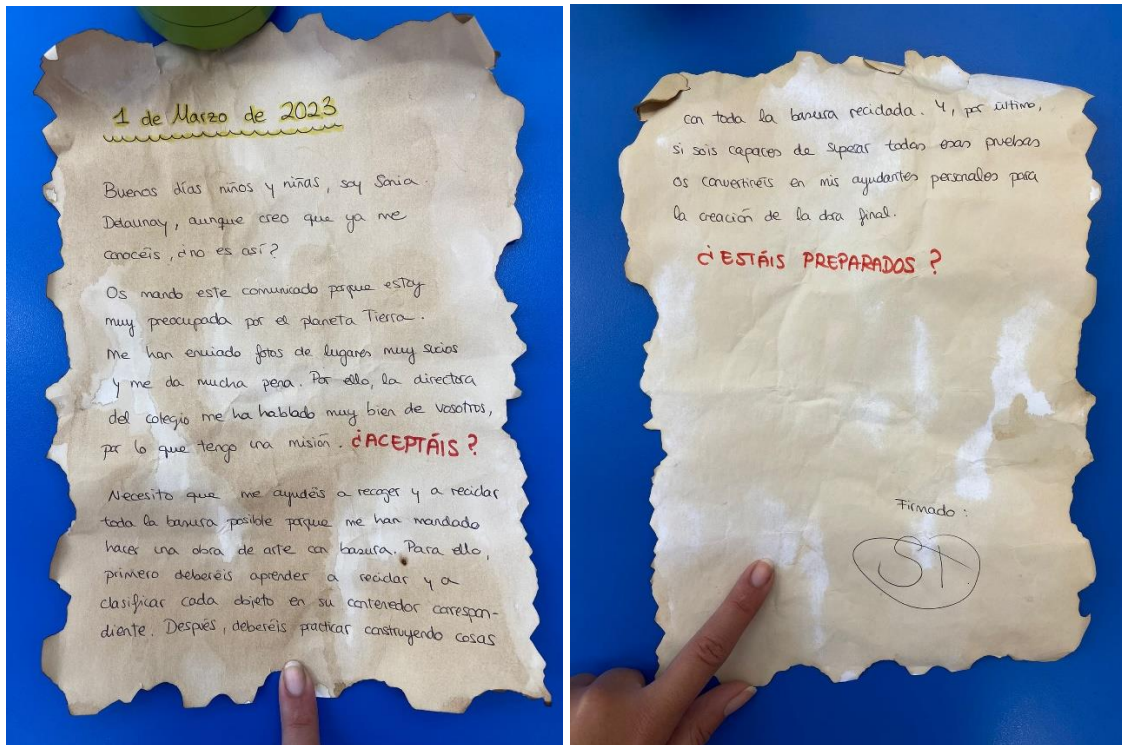 1 de Marzo de 2023
Buenos días niños y niñas, soy Sonia
Delaunay, aunque creo que ya me
conocéis, ¿no es así?
Os mando este comunicado porque estoy
muy preocupada por el planeta Tierra.
Me han enviado fotos de lugares muy sucios
y me da mucha pena. Por ello, la directora
del colegio me ha hablado muy bien de vosotros,
por lo que tengo una misión. ¿ACEPTÁIS?
Necesito que me ayudéis a recoger y a reciclar
toda la basura posible porque me han mandado
hacer una obra de arte con basura. Para ello,
primero deberéis aprender a reciclar y a
clasificar cada objeto en su contenedor correspon-
diente. Después, deberéis practicar construyendo cosas
con toda la basura reciclada. Y, por último,
si sois capaces de superar todas esas pruebas
os convertiréis en mis ayudantes personales para
la creación de la obra final.
¿ESTÁIS PREPARADOS?
Firmado: